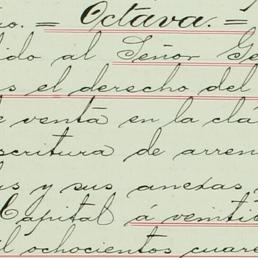 o. = Octava. =
dido al Señor Ge
s el derecho del
e venta en la clá
scritura de arren
as y sus anexas
Capital á veintio
il ochocientos cuare